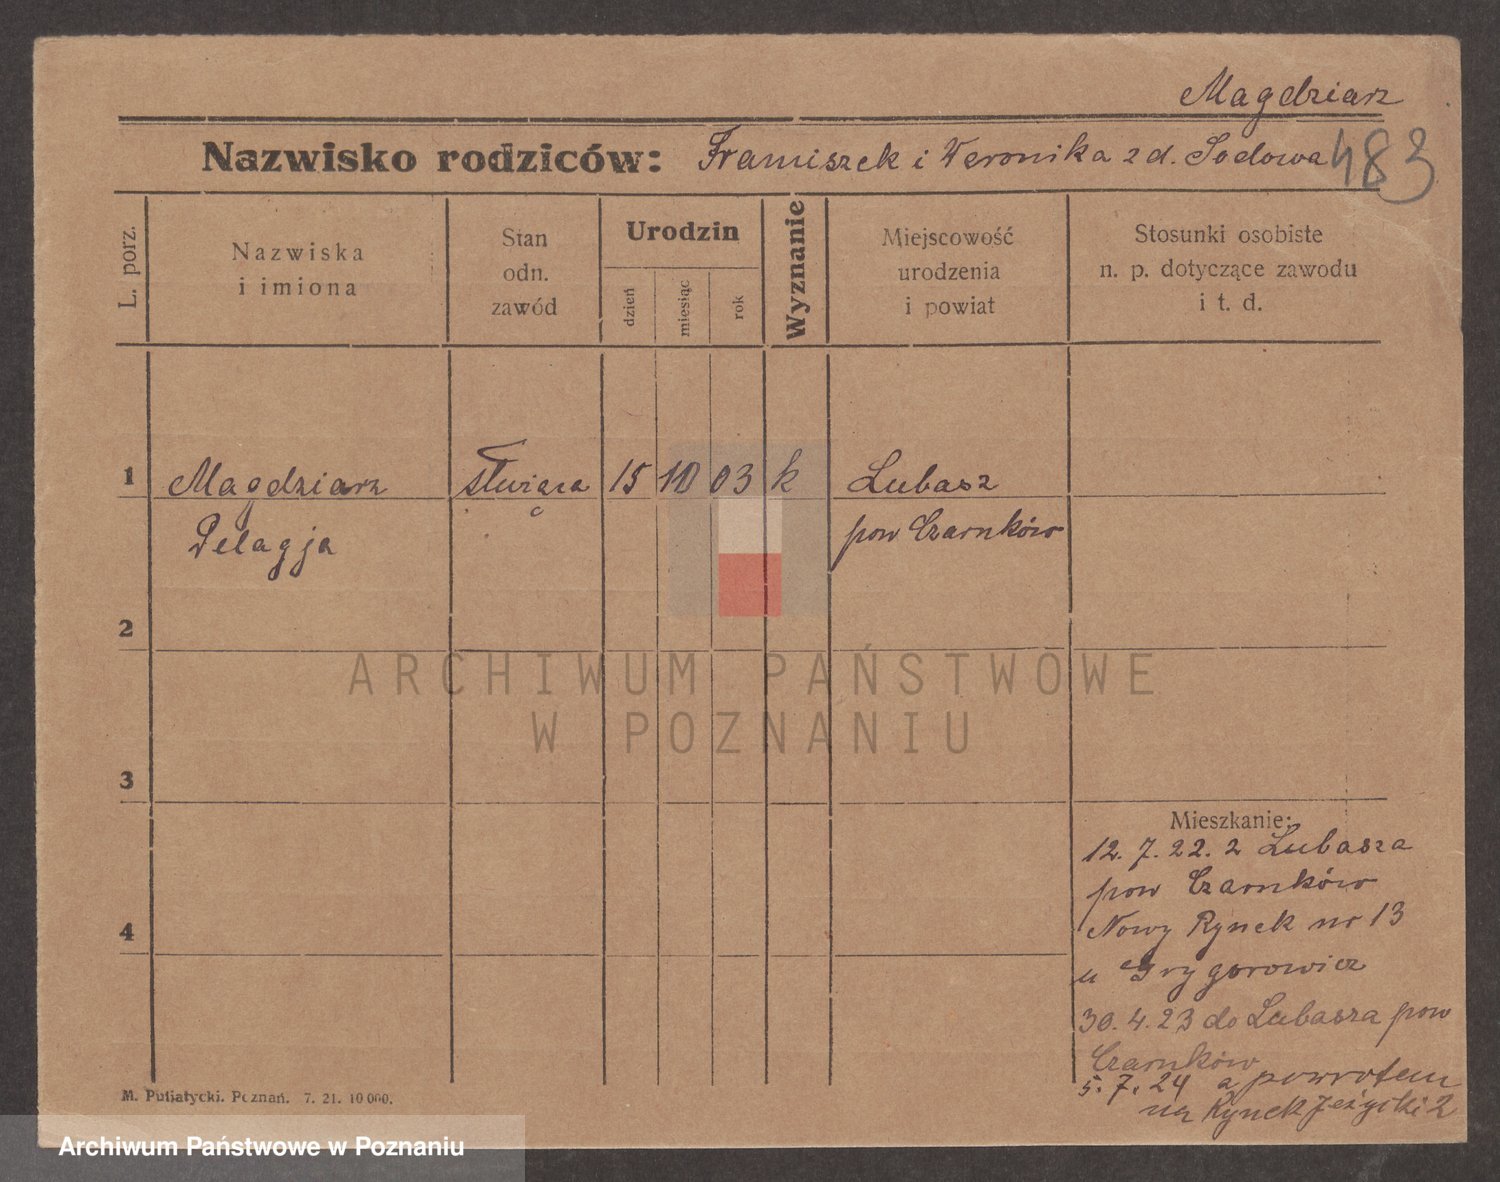 Magdziarz
Nazwisko rodziców: Franciszek i Weronika z d. Sodowa
483
L. porz.
Nazwiska
i imiona
Stan
odn.
zawód
Urodzin
dzień
miesiąc
rok
Wyznanie
Miejscowość
urodzenia
i powiat
Stosunki osobiste
n. p. dotyczące zawodu
i t. d.
1 Magdziarz służąca 15 10 03 k Lubasz
Pelagja pow Czarnków
2
ARCHIWUM PAŃSTWOWE
W POZNANIU
3
Mieszkanie:
12.7.22. z Lubasza
pow Czarnków
4
Nowy Rynek nr 13
u Grygorowicz
30.4.23 do Lubasza pow
Czarnków
5.7.24 z powrotem
na Rynek Jeżycki 2
M. Putiatycki. Poznań. 7. 21. 10 000.
Archiwum Państwowe w Poznaniu